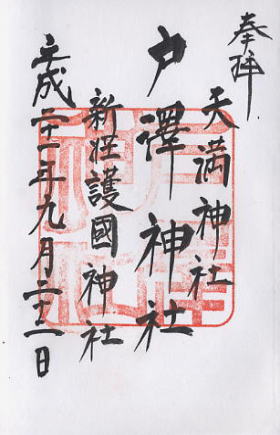 奉拝
天満神社
戸澤神社
新荘護國神社
平成二十一年九月二十二日